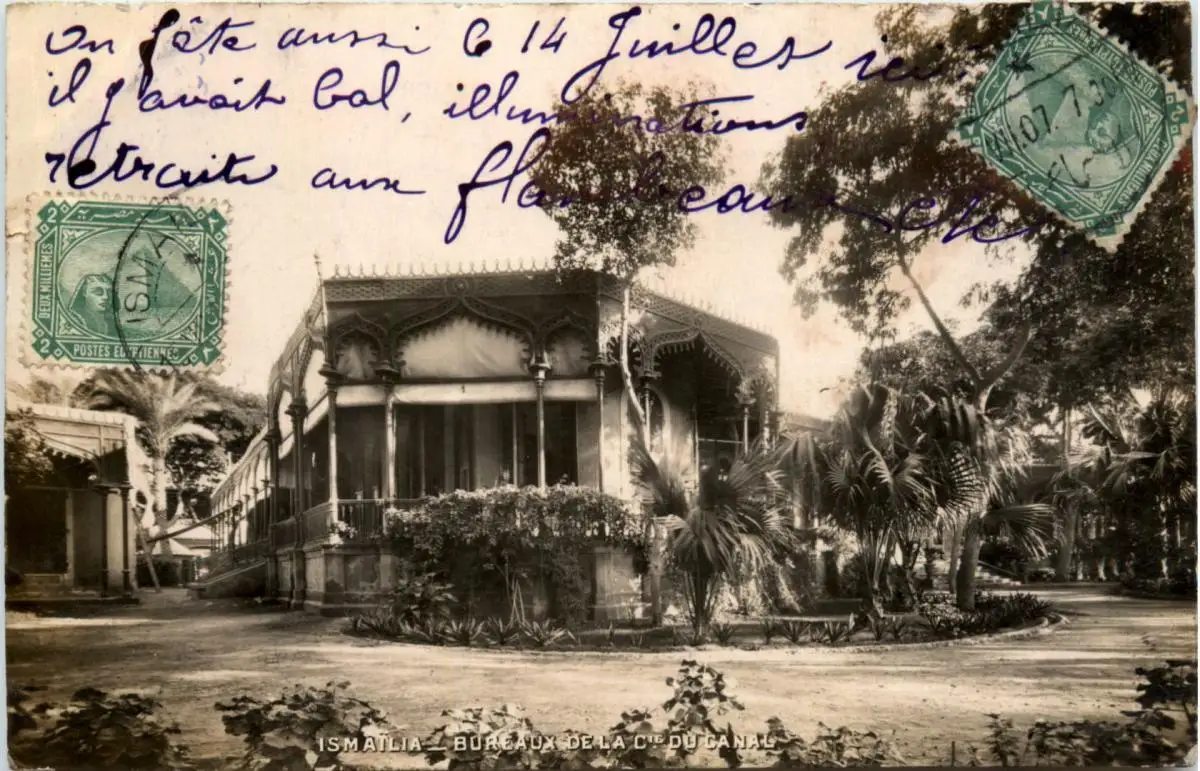 On fête aussi le 14 Juillet ici
il y avait bal, illuminations
retraite aux flambeaux etc
DEUX MILLIEMES
2
2
2
2
POSTES EGYPTIENNES
ISMA
07. 7 30
ISMAÏLIA — BUREAUX DE LA Cie DU CANAL